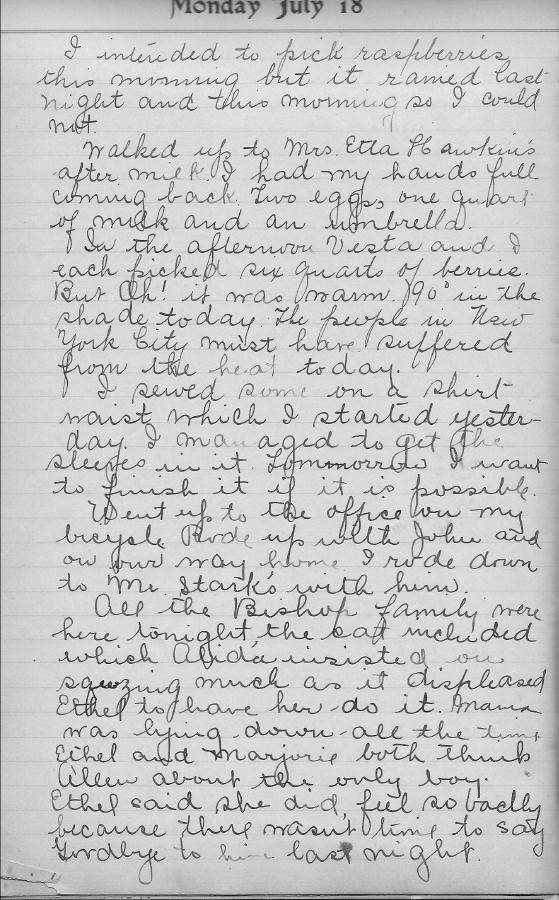 Monday July 18
I intended to pick raspberries
this morning but it rained last
night and this morning so I could
not.
Walked up to Mrs. Etta Hawkins
after milk. I had my hands full
coming back. Two eggs, one quart
of milk and an umbrella.
In the afternoon Vesta and I
each picked six quarts of berries.
But Oh! it was warm. 90° in the
shade today. The people in New
York City must have suffered
from the heat today.
I sewed some on a shirt-
waist which I started yester-
day. I managed to get the
sleeves in it. Tommorrow I want
to finish it if it is possible.
Went up to the office on my
bicycle. Rode up with John and
on our way home I rode down
to Mr. Stark's with him.
All the Bishop family were
here tonight, the cat included
which insisted on
squezing much as it displeased
Ethel to have her do it. Mama
was lying down all the time
Ethel and Marjorie both think
about the only boy.
Ethel said she did feel so badly
because there wasn't time to say
Goodbye to him last night.